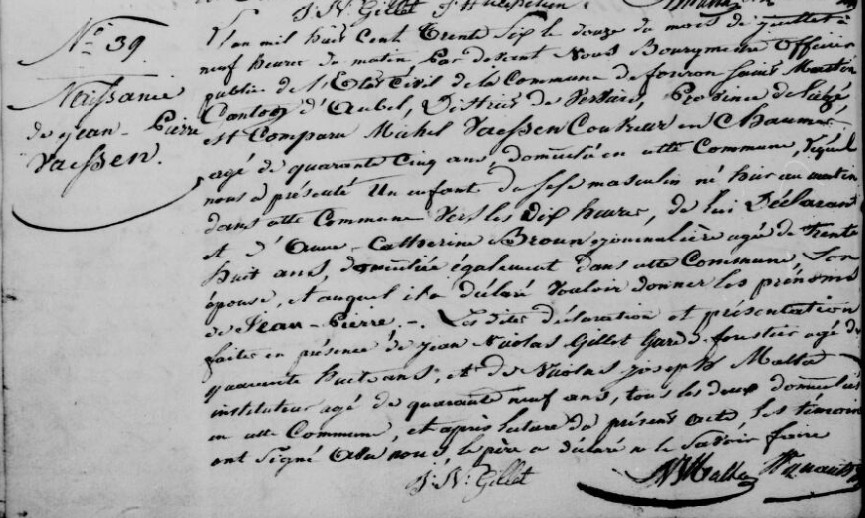 J. N. Gillet
N° 39
Naissance
de jean-Pierre
Vaessen.
L'an mil huit Cent Trente Six le douze du mois de juillet à
neuf heures du matin, Par devant Nous Bourgmestre Officier
public de l'Etat Civil de la Commune de foriron Saint Martin
Canton d'Aubel, District de Verviers, Province de Liége,
est Comparu Michel Vaessen Couvreur en Chaume,
agé de quarante Cinq ans, domicilié en cette Commune, Lequel
nous a présenté Un enfant du sexe masculin né hier au matin
dans cette Commune Vers les dix heures, de lui Déclarant
et d'Anne-Catherine Broun journalière agée de trente
huit ans, domiciliée également dans cette Commune, Son
épouse, et auquel il a déclaré Vouloir donner les prénoms
de Jean-Pierre,-. Les dites déclaration et présentation
faites en présence de jean Nicolas Gillet Garde forestier agé de
quarante huit ans, et de Nicolas joseph Malta
instituteur agé de quarante neuf ans, tous les deux domiciliés
en cette Commune, et après lecture du présent acte, les témoins
ont Signé avec nous, le père a déclaré ne le Savoir faire
J. N. Gillet